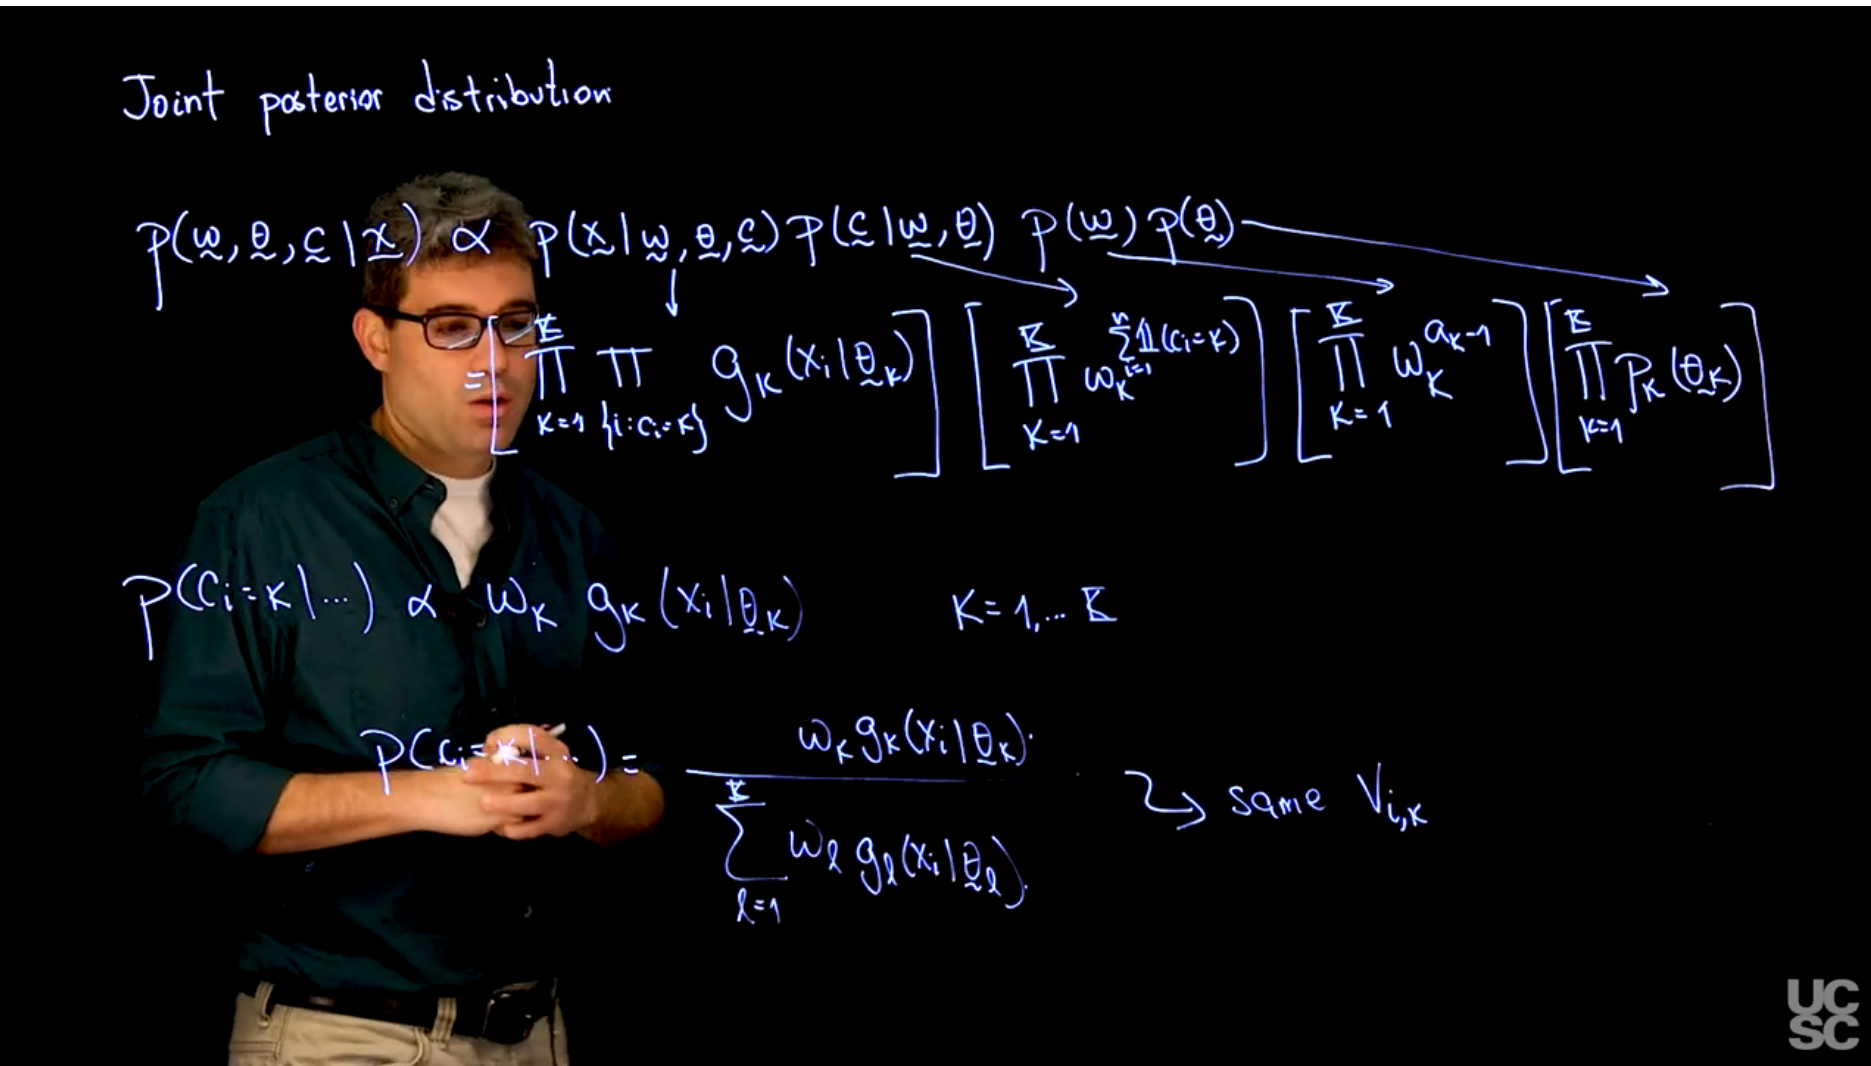 Joint posterior distribution
p(w̰, θ̰, c̰ | x̰) ∝ p(x̰ | w̰, θ̰, c̰) p(c̰ | w̰, θ̰) p(w̰) p(θ̰)
= [∏_{k=1}^{K} ∏_{{i: c_i = k}} g_k(x_i | θ̰_k)] [∏_{k=1}^{K} ω_k^{∑_{i=1}^{n} 𝟙(c_i = k)}] [∏_{k=1}^{K} ω_k^{a_k - 1}] [∏_{k=1}^{K} p_k(θ̰_k)]
p(c_i = k | ...) ∝ ω_k g_k(x_i | θ̰_k) k = 1, ... K
p(c_i = k | ...) = ω_k g_k(x_i | θ̰_k) / ∑_{l=1}^{K} ω_l g_l(x_i | θ̰_l) ↝ same V_{i,k}
UC
SC